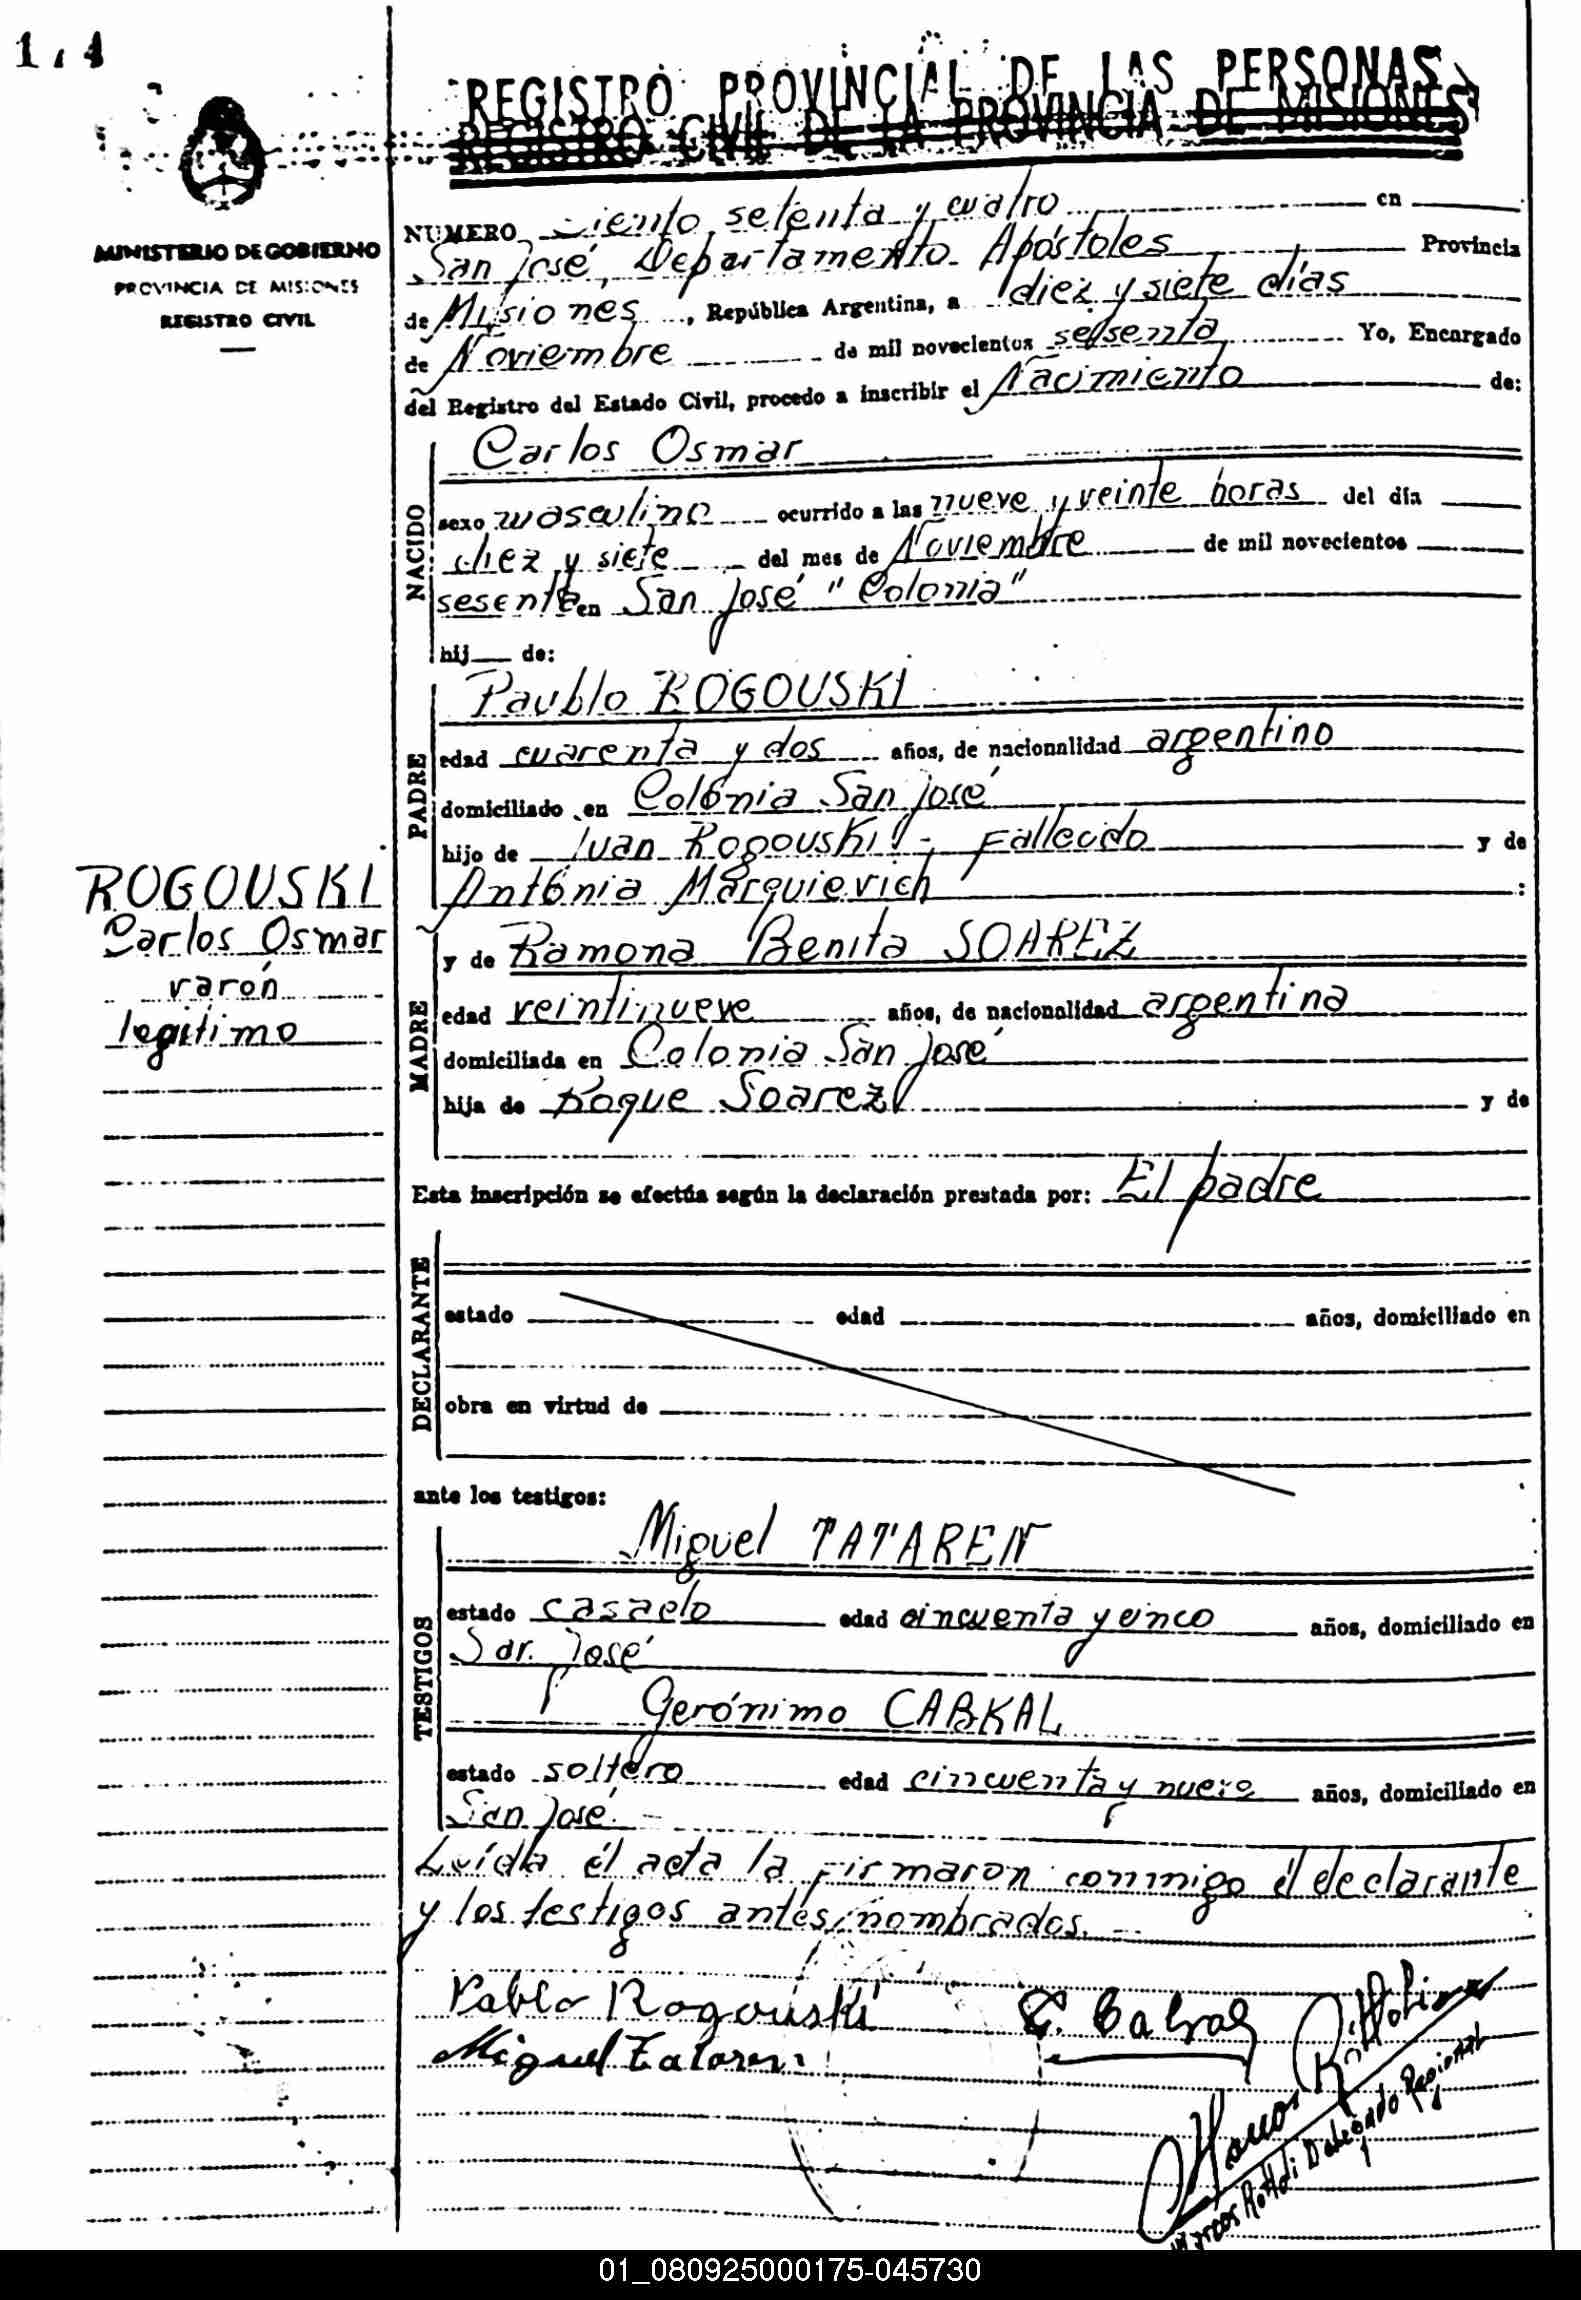 174
REGISTRO PROVINCIAL DE LAS PERSONAS
REGISTRO CIVIL DE LA PROVINCIA DE MISIONES
MINISTERIO DE GOBIERNO
PROVINCIA DE MISIONES
REGISTRO CIVIL
NUMERO Ciento setenta y cuatro en
San José, Departamento Apóstoles Provincia
de Misiones, República Argentina, a diez y siete días
de Noviembre de mil novecientos sesenta Yo, Encargado
del Registro del Estado Civil, procedo a inscribir el Nacimiento de:
NACIDO
Carlos Osmar
sexo masculino ocurrido a las nueve y veinte horas del día
diez y siete del mes de Noviembre de mil novecientos
sesenta en San José "Colonia"
hij de:
PADRE
Paublo ROGOUSKI
edad cuarenta y dos años, de nacionalidad argentino
domiciliado en Colónia San José
hijo de Iuan Rogouski - Fallecido y de
Antónia Marquievich
ROGOUSKI
Carlos Osmar
varón
legítimo
MADRE
y de Ramona Benita SOAREZ
edad veintinueve años, de nacionalidad argentina
domiciliada en Colonia San José
hija de Roque Soarez y de
Esta inscripción se efectúa según la declaración prestada por: El padre
DECLARANTE
estado edad años, domiciliado en
obra en virtud de
ante los testigos:
TESTIGOS
Miguel TATAREN
estado casado edad cincuenta y cinco años, domiciliado en
San José
Gerónimo CABRAL
estado soltero edad cincuenta y nueve años, domiciliado en
San José. -
Leída él acta la firmaron conmigo él declarante
y los testigos antes nombrados. -
Pablo Rogouski
G. Cabral
Miguel Tataren
Marcos Rattoli Delegado Regional
01_080925000175-045730